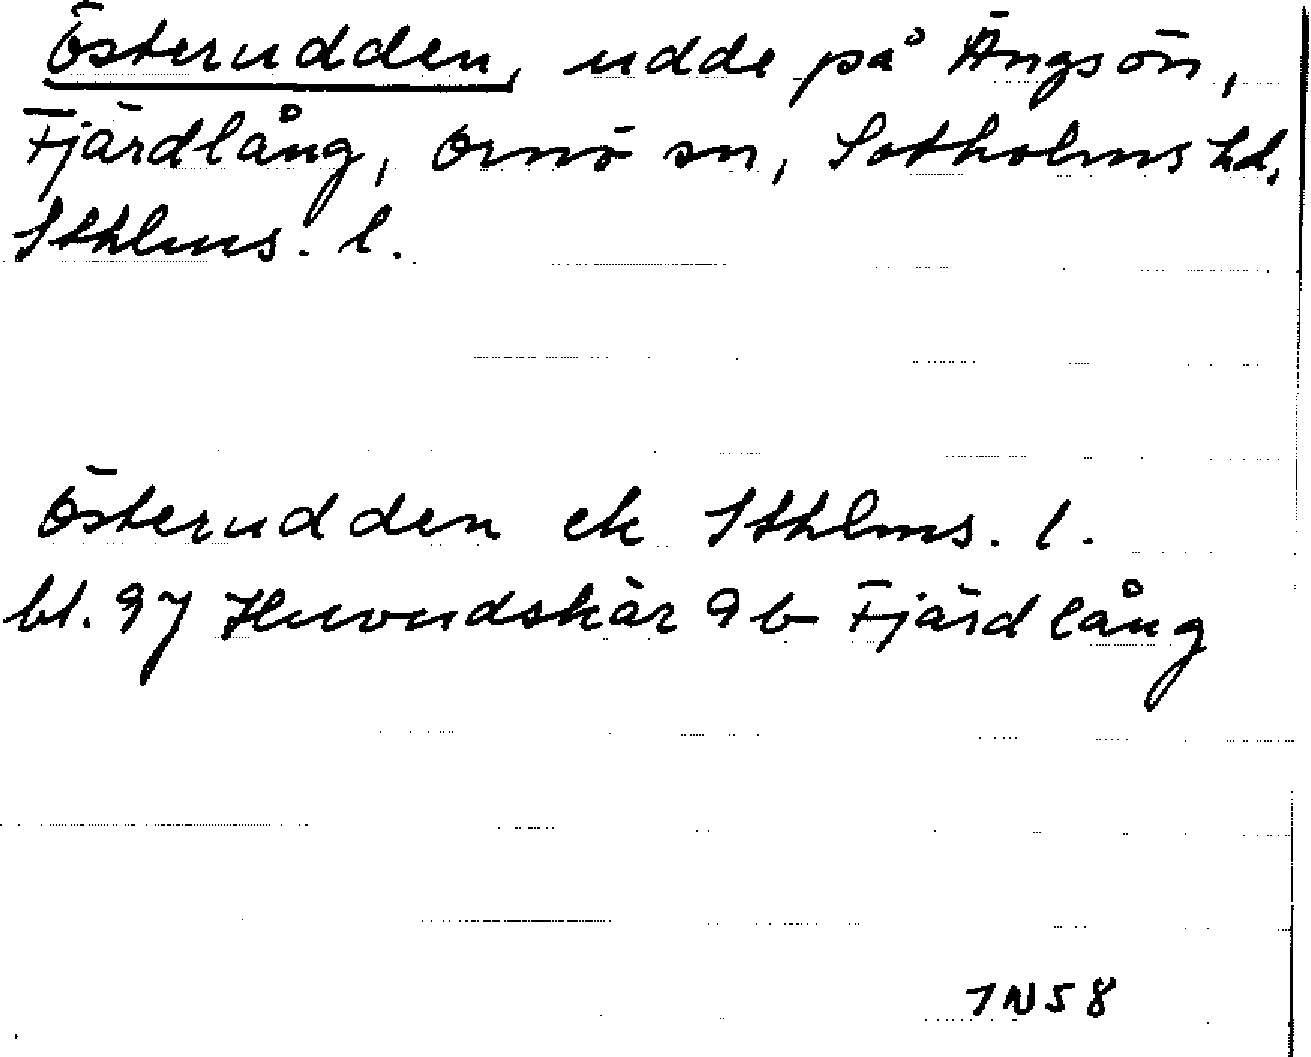 Österudden, udde på Ängsön,
Fjärdlång, Ornö sn, Sotholms hd,
Sthlms. l.
Österudden ek Sthlms. l.
bl. 97 Huvudskär 9b Fjärdlång
1N58